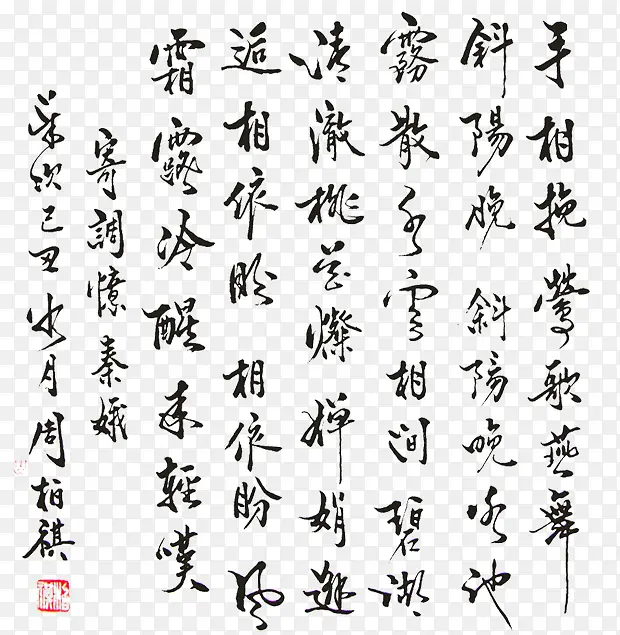 手相挽鶯歌燕舞
斜陽晚斜陽晚池
霧散水雲相間碧湖
清澈桃花燦嬋娟邂
逅相依盼相依盼風
霜露冷醒来輕嘆
寄調憶秦娥
歲次己丑月周柏祺